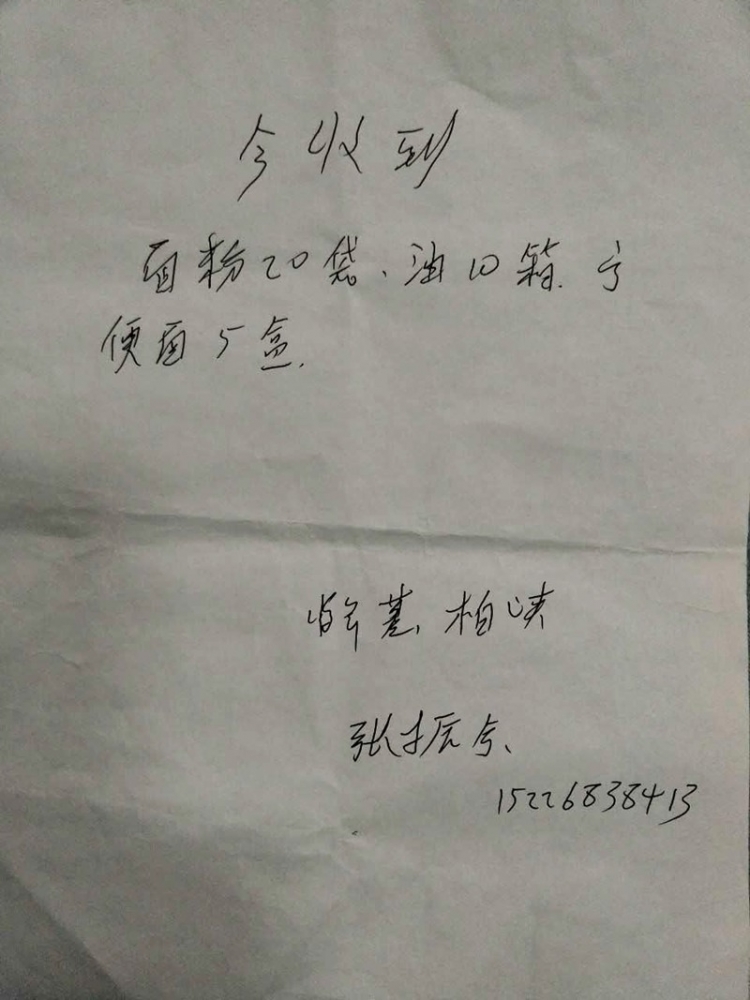 今收到
面粉20袋、油10箱.方
便面5盒.
柏峡
张振
15226838413